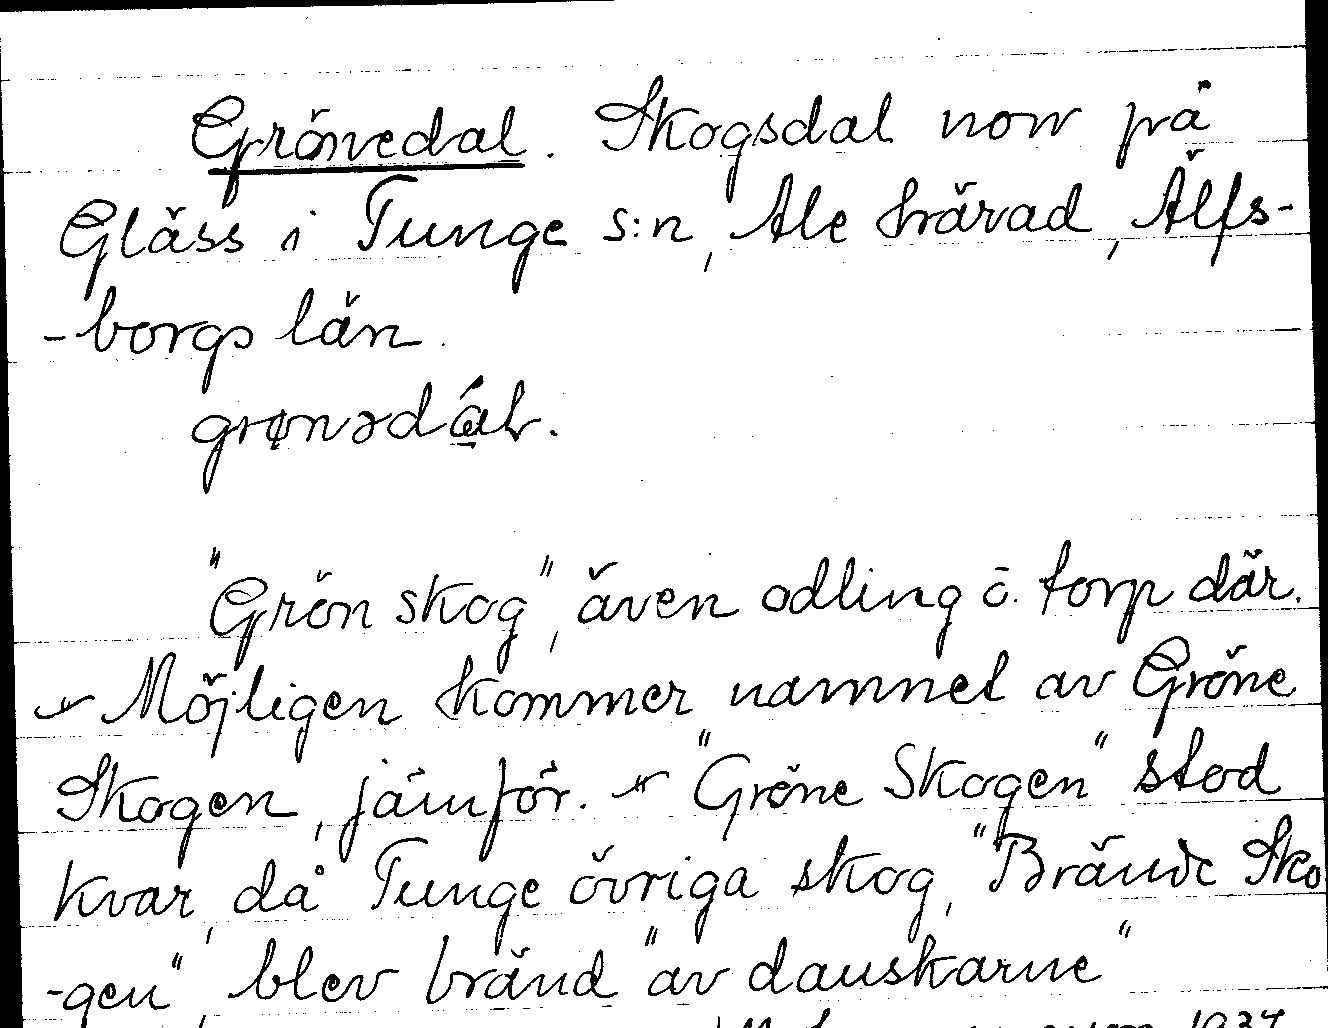 Grönedal. Skogsdal norr på
Gläss i Tunge s:n, Ale härad, Älfs-
-borgs län.
"Grön skog", även odling o. torp där.
Möjligen kommer namnet av Gröne
Skogen, jämför. "Gröne Skogen" stod
kvar, då Tunge övriga skog, "Brände Sko
-gen", blev bränd "av danskarne"
1937